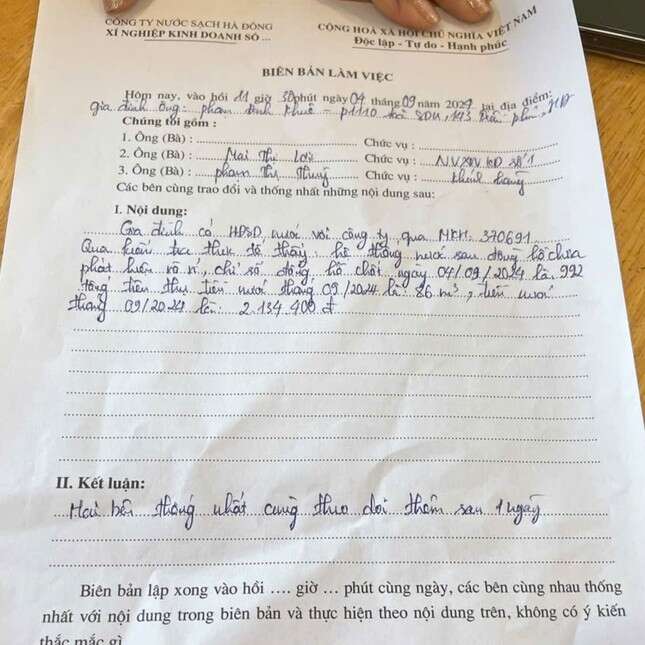 CÔNG TY NƯỚC SẠCH HÀ ĐÔNG
XÍ NGHIỆP KINH DOANH SỐ ...
CỘNG HOÀ XÃ HỘI CHỦ NGHĨA VIỆT NAM
Độc lập - Tự do - Hạnh phúc
BIÊN BẢN LÀM VIỆC
Hôm nay, vào hồi 11 giờ 30 phút ngày 04 tháng 09 năm 2024 tại địa điểm:
gia đình ông: phạm Đình Khuê - p1110 toà SDU, 143 Trần phú, HĐ
Chúng tôi gồm :
1. Ông (Bà) : Chức vụ :
2. Ông (Bà) : Mai Thị Chức vụ : N.V.XN KD số 1
3. Ông (Bà) : phạm Thị Thuỷ Chức vụ : khách hàng
Các bên cùng trao đổi và thống nhất những nội dung sau:
I. Nội dung:
Gia đình có HĐSD nước với công ty, qua MKH: 370691
Qua kiểm tra thực tế thấy: hệ thống nước sau đồng hồ chưa
phát hiện rò rỉ, chỉ số đồng hồ chốt ngày 04/09/2024 là 992
tổng tiêu thụ tiền nước tháng 09/2024 là: 86 m³, tiền nước
tháng 09/2024 là: 2.134.400 đ
II. Kết luận:
Hai bên thống nhất cùng theo dõi thêm sau 1 ngày
Biên bản lập xong vào hồi .... giờ ... phút cùng ngày, các bên cùng nhau thống
nhất với nội dung trong biên bản và thực hiện theo nội dung trên, không có ý kiến
thắc mắc gì